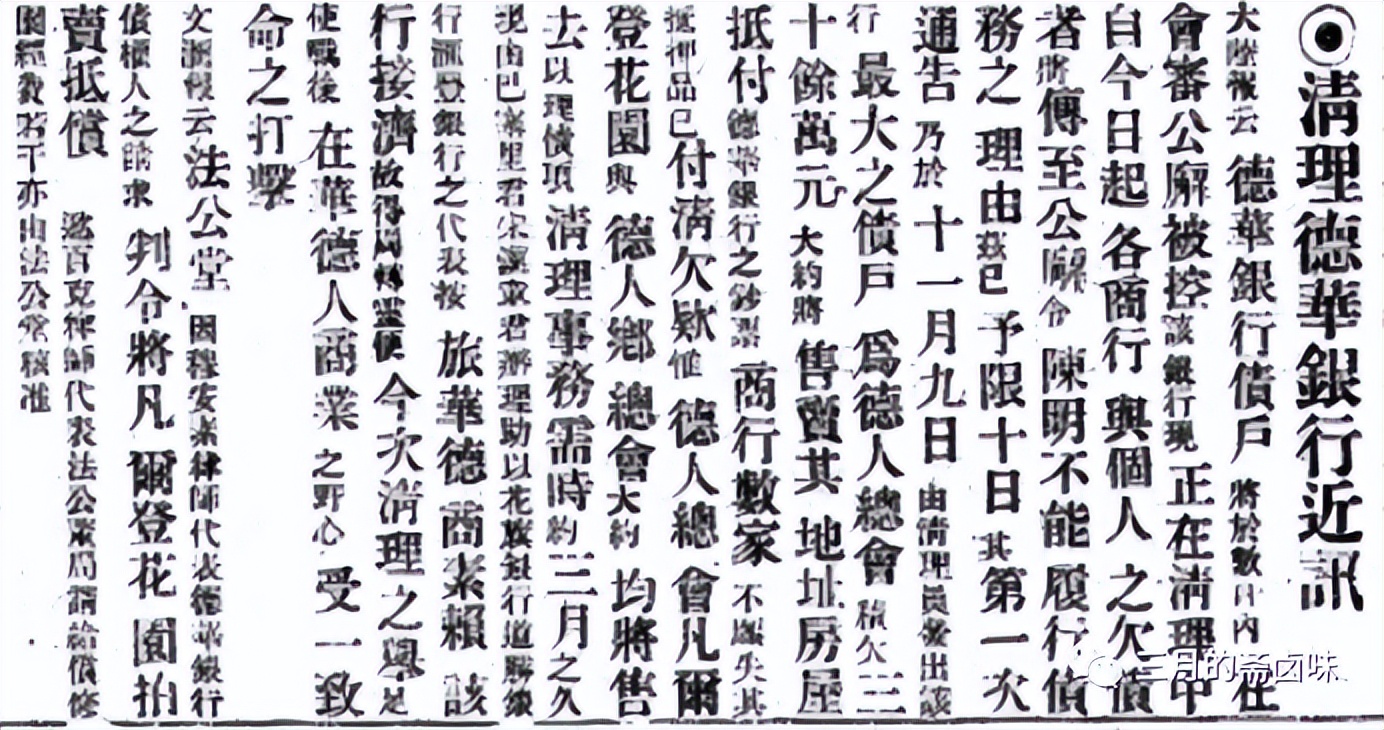 ◉清理德華銀行近訊
大陸報云 德華銀行債戶 將於數日內 在
會審公廨被控 該銀行現 正在清理中
自今日起各商行 與個人 之欠債
者將傳至公廨令 陳明不能履行債
務之 理由茲已 予限十日其第一次
通告 乃於 十一月九日 由清理員發出該
行 最大之債戶 爲德人總會 積欠三
十餘萬元 大約將 售賣其 地址房屋
抵付 德華銀行之鈔票 商行數家 不 失其
抵押品已付清欠欵惟 德人總會凡爾
登花園與 德人鄉 總會大約 均將售
去以理債項 清理事務需時約三月之久
現由巴 里君宋漢章君辦理助以花旗銀行道勝銀
行滙豐銀行之代表按 旅華德 商素賴 該
行接濟故得周轉靈便 今次清理之舉足
使戰後 在華德人商業 之野心 受一致
命之打擊
文滙報云法公堂 因穆安素律師代表德華銀行
債權人之請求 判令將凡 爾登花 園拍
賣抵償 逖百克律師代表法公董局請給償修
園經費若干亦由法公堂核准
三月的斋卤味